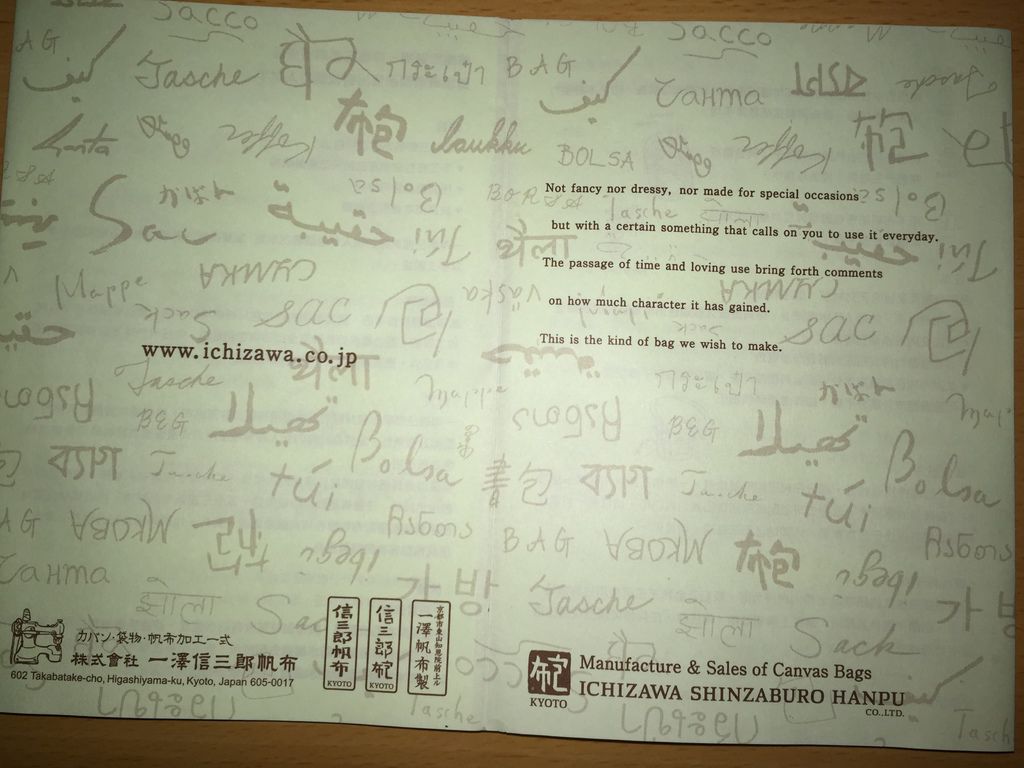 Sacco
BAG
كيف
Tasche
बैग
กระเป๋า
BAG
Koffer
laukku
BOLSA
Санта
Bolsa
Sac
حقيبة
Túi
BORSA
Tasche
झोला
Not fancy nor dressy, nor made for special occasions
but with a certain something that calls on you to use it everyday.
The passage of time and loving use bring forth comments
on how much character it has gained.
This is the kind of bag we wish to make.
СУМКА
Mappe
Sack
sac
väska
www.ichizawa.co.jp
Tasche
BEG
ব্যাগ
Tasche
túi
Bolsa
書包
MKOBA
ibegi
BAG
가방
Tasche
झोला
Sack
カバン・袋物・帆布加工一式
株式會社 一澤信三郎帆布
602 Takabatake-cho, Higashiyama-ku, Kyoto, Japan 605-0017
信三郎帆布
KYOTO
信三郎布包
KYOTO
京都市東山知恩院前上ル
一澤帆布製
布包
KYOTO
Manufacture & Sales of Canvas Bags
ICHIZAWA SHINZABURO HANPU
CO.,LTD.